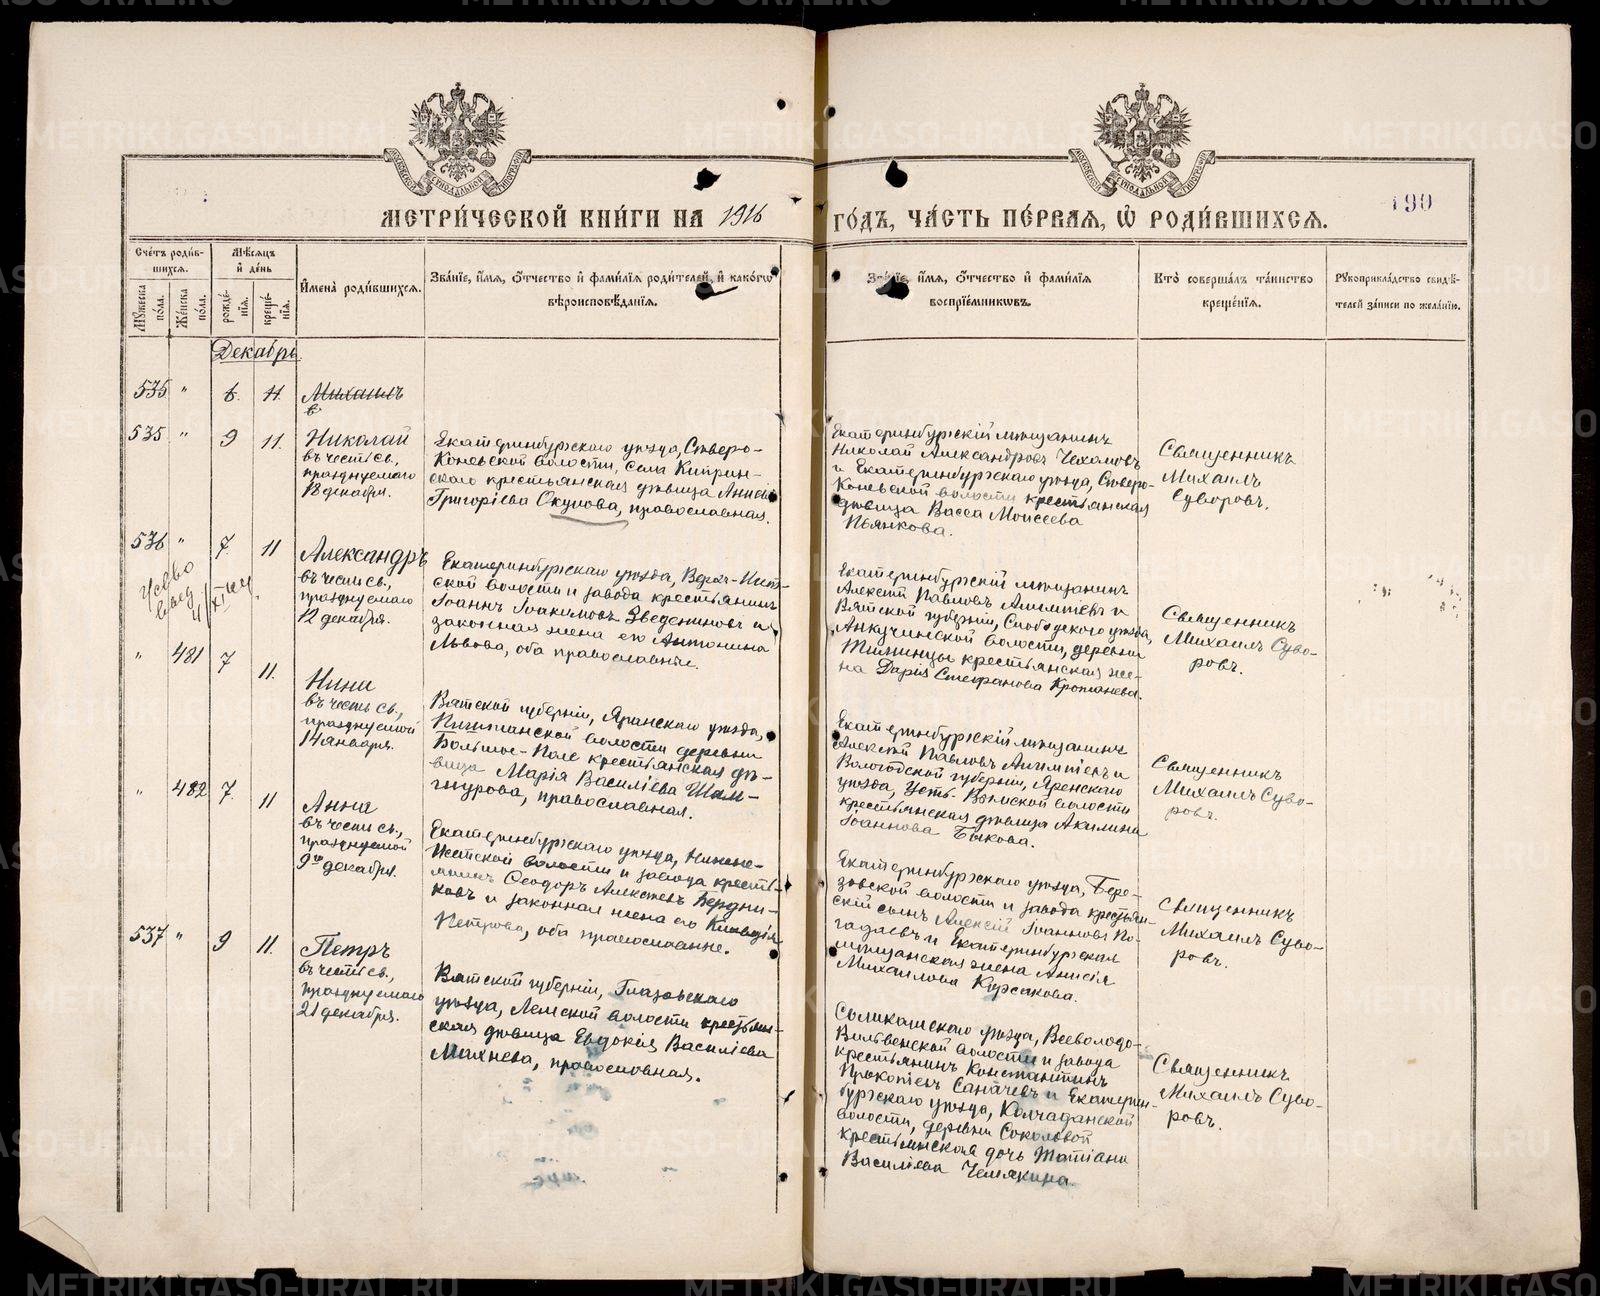 МЕТРИ́ЧЕСКОЙ КНИ́ГИ НА 1916
ГО́ДЪ, ЧА́СТЬ ПЕ́РВАЯ, Ѡ РОДИ́ВШИХСЯ.
190
Счетъ роди́в-
шихся.
Мѣсяцъ
и день
Мужеска по́ла.
Же́нска по́ла.
рожде́нїя.
креще́нїя.
Имена̀ роди́вшихся.
Зва́нїе, и́мя, о́тчество и фами́лїя роди́телей, и како́гѡ
вѣроисповѣ́данїя.
Зва́нїе, и́мя, о́тчество и фами́лїя
воспрїе́мниковъ.
Кто̀ соверша́лъ та́инство
креще́нїя.
Рукоприкла́дство свидѣ́-
телей за́писи по жела́нїю.
Декабрь.
535 " 6. 11. Михаилъ
в
535 " 9 11. Николай
въ честь св.,
празднуемаго
18 декабря.
Екатеринбургскаго уѣзда,
Коневской волости, села
скаго крестьянская дѣвица Анисія
Григоріева Окулова, православная.
Екатеринбургскій мѣщанинъ
Николай Александровъ Чехомовъ
и Екатеринбургскаго уѣзда,
Коневской волости крестьянская
дѣвица Васса Моисеева
Пьянкова.
Священникъ
Михаилъ
Суворовъ.
536 " 7. 11 Александръ
въ честь св.,
празднуемаго
12 декабря.
Екатеринбургскаго уѣзда, Верх-Исет-
ской волости и завода крестьянинъ
Іоаннъ Іоакимовъ Зведениновъ и
законная жена его Антонина
Львова, оба православные.
Екатеринбургскій мѣщанинъ
Алексій Павловъ и
Вятской губерніи, Слободскаго уѣзда,
волости, деревни
крестьянская же-
на Дарія Стефанова
Священникъ
Михаилъ Суво-
ровъ.
" 481 7 11. Нина
въ честь св.,
празднуемой
14 января.
Вятской губерніи, Яранскаго уѣзда,
волости деревни
Большое-Поле крестьянская дѣ-
вица Марія Василіева Шам-
гурова, православная.
Екатеринбургскій мѣщанинъ
Алексій Павловъ и
Вологодской губерніи, Яренскаго
уѣзда, Усть-Вымской волости
крестьянская дѣвица Акилина
Іоаннова Быкова.
Священникъ
Михаилъ Суво-
ровъ.
" 482 7. 11 Анна
въ честь св.,
празднуемой
9го декабря.
Екатеринбургскаго уѣзда, Нижне-
Исетской волости и завода кресть-
янинъ Ѳеодоръ Алексѣевъ Бердни-
ковъ и законная жена его Клавдія
Петрова, оба православные.
Екатеринбургскаго уѣзда, Бере-
зовской волости и завода крестьян-
скій сынъ Алексій Іоанновъ По-
гадаевъ и Екатеринбургская
мѣщанская жена Анисія
Михаилова Корсакова.
Священникъ
Михаилъ Суво-
ровъ.
537 " 9 11. Петръ
въ честь св.,
празднуемаго
21 декабря.
Вятской губерніи, Глазовскаго
уѣзда, Лемской волости крестьян-
ская дѣвица Евдокія Василіева
Махнева, православная.
Соликамскаго уѣзда, Всеволодо-
Вильвенской волости и завода
крестьянинъ Константинъ
Прокопіевъ Саначевъ и Екатерин-
бургскаго уѣзда, Колчеданской
волости, деревни Соколовой
крестьянская дочь Татіана
Василіева Чемякина.
Священникъ
Михаилъ Суво-
ровъ.
METRIKI.GASO-URAL.RU